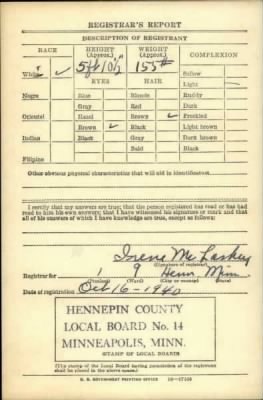 REGISTRAR'S REPORT
DESCRIPTION OF REGISTRANT
RACE HEIGHT (Approx.) WEIGHT (Approx.) COMPLEXION
White ✓ 5ft 10½ 155# Sallow
EYES HAIR Light
Negro Blue Blonde Ruddy
Gray Red Dark
Oriental Hazel Brown ✓ Freckled
Brown ✓ Black Light brown
Indian Black Gray Dark brown
Bald Black
Filipino
Other obvious physical characteristics that will aid in identification
I certify that my answers are true; that the person registered has read or has had
read to him his own answers; that I have witnessed his signature or mark and that
all of his answers of which I have knowledge are true, except as follows:
Irene
(Signature of registrar)
Registrar for 1 9 Henn Minn.
(Precinct) (Ward) (City or county) (State)
Date of registration Oct 16-1940
HENNEPIN COUNTY
LOCAL BOARD No. 14
MINNEAPOLIS, MINN.
STAMP OF LOCAL BOARD
(The stamp of the Local Board having jurisdiction of the registrant
shall be placed in the above space.)
U. S. GOVERNMENT PRINTING OFFICE